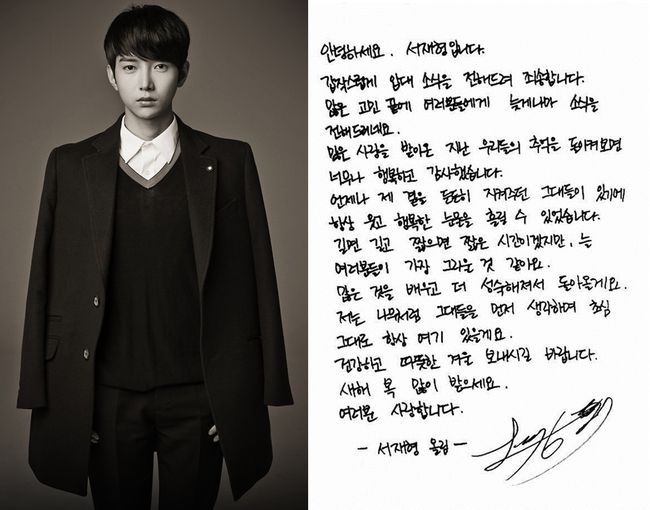 안녕하세요. 서재형입니다.
갑작스럽게 입대 소식을 전해드려 죄송합니다.
많은 고민 끝에 여러분들에게 늦게나마 소식을
전해드리네요.
많은 사랑을 받아온 지난 우리들의 추억을 돌이켜보면
너무나 행복하고 감사했습니다.
언제나 제 곁을 든든히 지켜주던 그대들이 있기에
항상 웃고 행복한 눈물을 흘릴 수 있었습니다.
길면 길고 짧으면 짧은 시간이겠지만, 는
여러분들이 가장 그리운 것 같아요.
많은 것을 배우고 더 성숙해져서 돌아올게요.
저는 나무처럼 그대들을 먼저 생각하며 초심
그대로 항상 여기 있을게요.
건강하고 따뜻한 겨울 보내시길 바랍니다.
새해 복 많이 받으세요.
여러분 사랑합니다.
- 서재형 올림 -